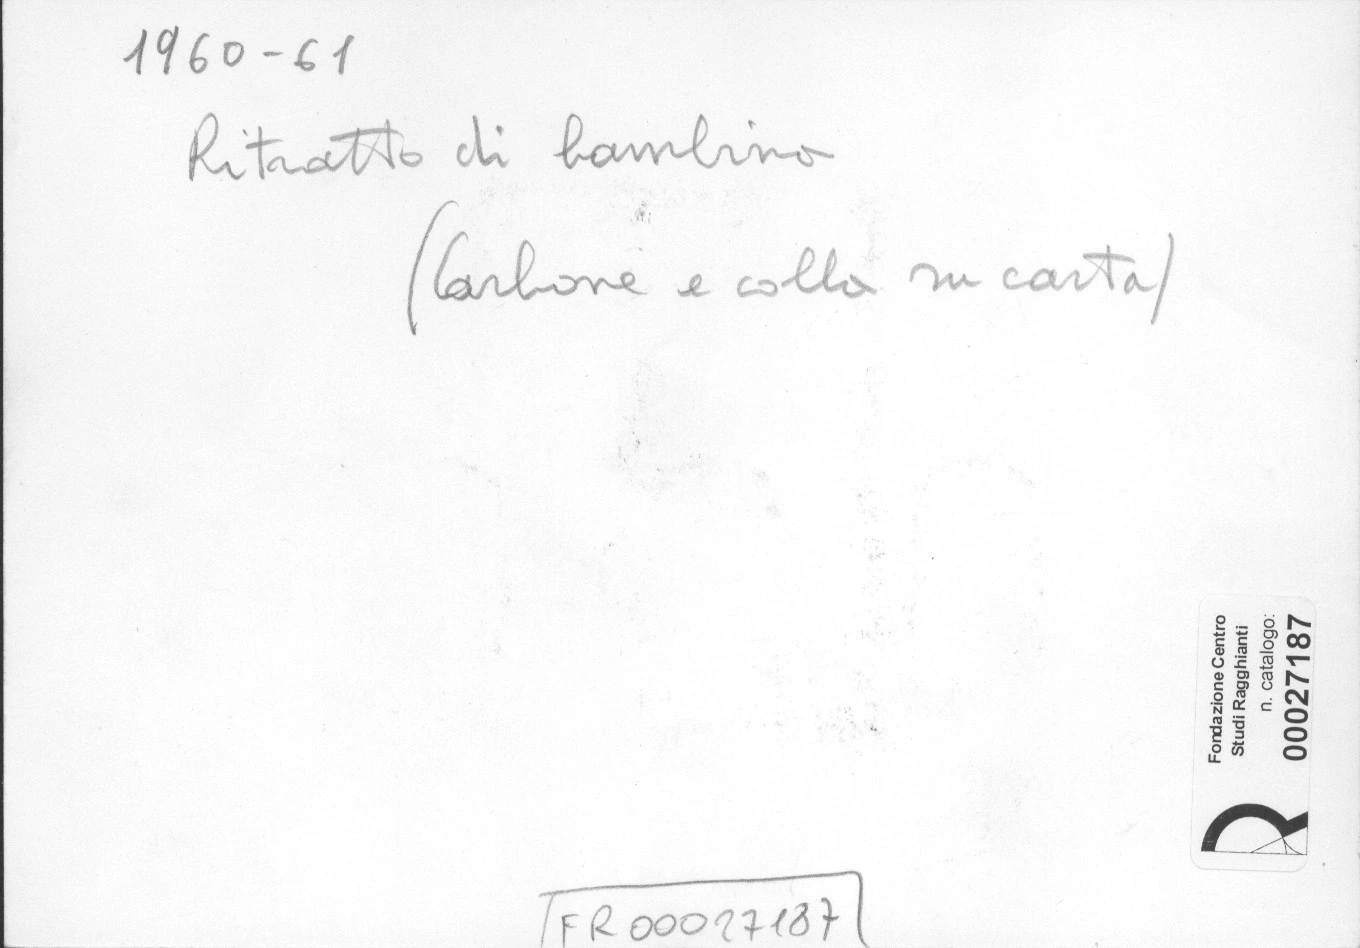 1960-61
Ritratto di bambino
(Carbone e colla su carta)
Fondazione Centro
Studi Ragghianti
n. catalogo:
00027187
FR00027187